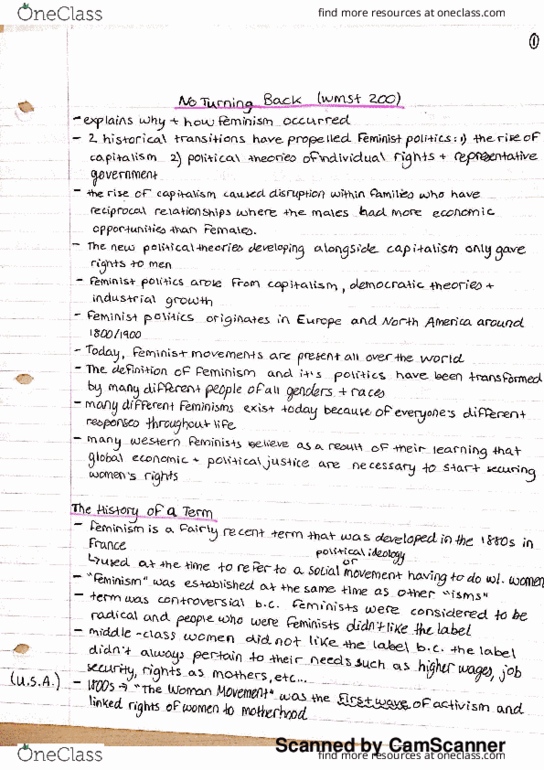 OneClass
find more resources at oneclass.com
1
No Turning Back (WMST 200)
- explains why + how feminism occurred
- 2 historical transitions have propelled feminist politics: 1) the rise of
capitalism 2) political theories of individual rights + representative
government
- the rise of capitalism caused disruption within families who have
reciprocal relationships where the males had more economic
opportunities than females.
- The new political theories developing alongside capitalism only gave
rights to men
- Feminist politics arose from capitalism, democratic theories +
industrial growth
- Feminist politics originates in Europe and North America around
1800/1900
- Today, Feminist movements are present all over the world
- The definition of feminism and it's politics have been transformed
by many different people of all genders + races
- many different feminisms exist today because of everyone's different
responses throughout life
- many western feminists believe as a result of their learning that
global economic + political justice are necessary to start securing
women's rights
The History of a Term
- Feminism is a fairly recent term that was developed in the 1880s in
France
political ideology
or
↳ used at the time to refer to a social movement having to do w/. women
- "Feminism" was established at the same time as other "isms"
- term was controversial b.c. feminists were considered to be
radical and people who were feminists didn't like the label
- middle-class women did not like the label b.c. the label
didn't always pertain to their needs such as higher wages, job
security, rights as mothers, etc...
(U.S.A.) - 1800s → "The Woman Movement" was the first wave of activism and
linked rights of women to motherhood
Scanned by CamScanner
OneClass
find more resources at oneclass.com